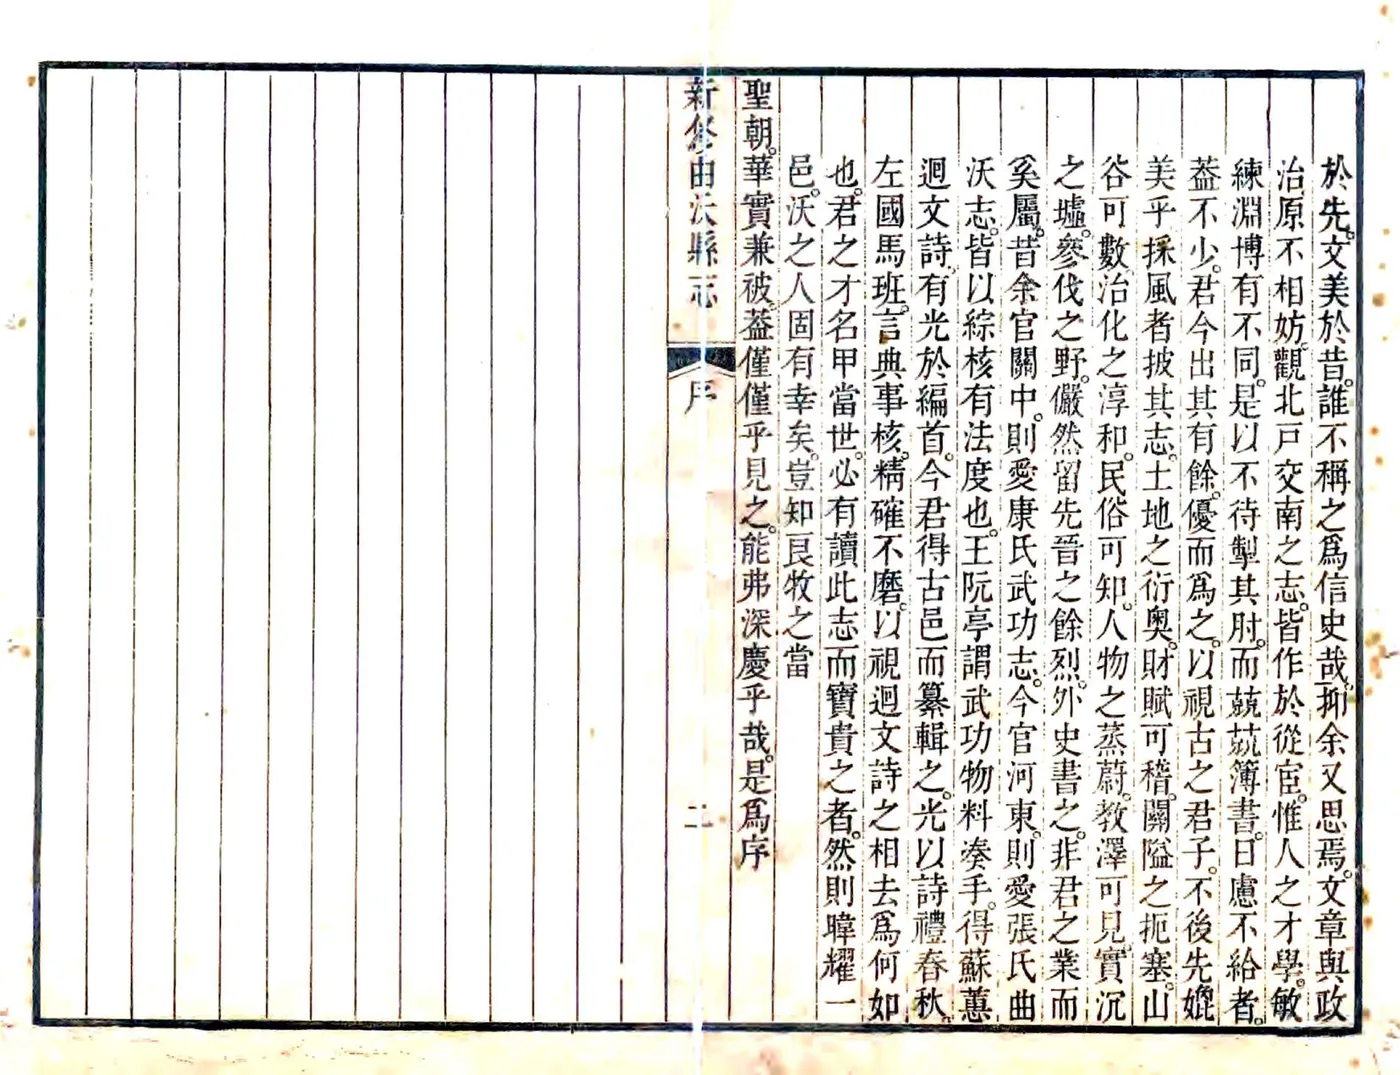 於先。文美於昔。誰不稱之爲信史哉。抑余又思焉。文章與政
治原不相妨。觀北戸交南之志。皆作於從宦。惟人之才學。敏
練淵博有不同。是以不待掣其肘。而兢兢簿書。日慮不給者。
葢不少。君今出其有餘。優而爲之。以視古之君子。不後先媲
美乎。採風者披其志。土地之衍奧。財賦可稽。關隘之扼塞。山
谷可數。治化之淳和。民俗可知。人物之蒸蔚。教澤可見。實沉
之墟。參伐之野。儼然留先晉之餘烈。外史書之。非君之業而
奚屬。昔余官關中。則愛康氏武功志。今官河東。則愛張氏曲
沃志。皆以綜核有法度也。王阮亭謂武功物料凑手。得蘇蕙
迴文詩。有光於編首。今君得古邑而纂輯之。光以詩禮春秋。
左國馬班。言典事核。精確不磨。以視迴文詩之相去爲何如
也。君之才名甲當世。必有讀此志而寶貴之者。然則暐耀一
邑。沃之人固有幸矣。豈知良牧之當
聖朝。華實兼被。葢僅僅乎見之。能弗深慶乎哉。是爲序
新修曲沃縣志
序
二